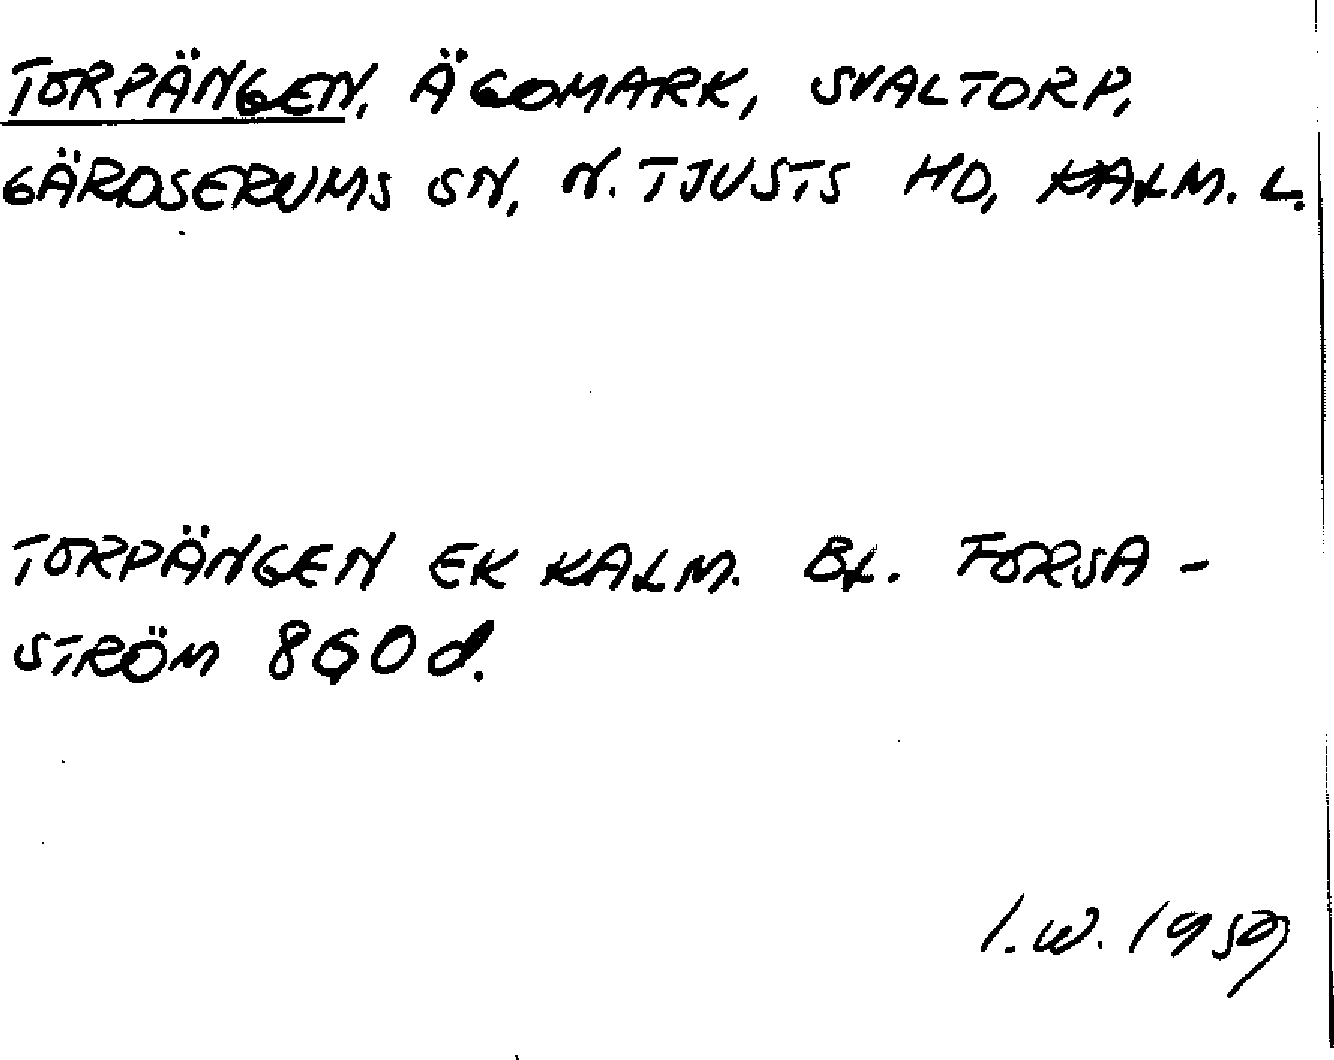 TORPÄNGEN, ÄGOMARK, SVALTORP,
GÄRDSERUMS SN, N. TJUSTS HD, KALM. L.
TORPÄNGEN EK KALM. BL. FORSA-
STRÖM 860 d.
I.W. 1959